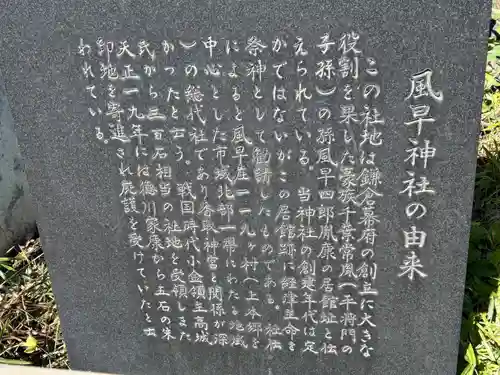 風早神社の由来
この社地は鎌倉幕府の創立に大きな
役割を果した豪族千葉常胤(平将門の
子孫)の孫風早四郎胤康の居館址と伝
えられている。当神社の創建年代は定
かではないがこの居館跡に経津主命を
祭神として勧請したものである。社伝
によると風早庄一一九ヶ村(上本郷を
中心とした市域北部一帯にわたる地域
)の総代社であり香取神宮と関係が深
かったと云う。戦国時代小金領主高城
氏から三百石相当の社地を受領しまた
天正一九年には徳川家康から五石の朱
印地を寄進され庇護を受けていたと云
われている。